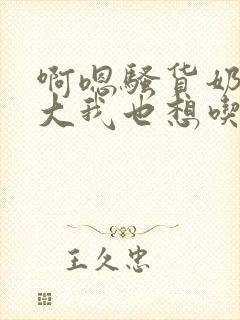 啊嗯骚货奶
大我也想喫
王久忠